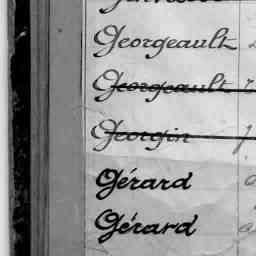 Georgeault
Georgeault
Georgin
Gérard
Gérard